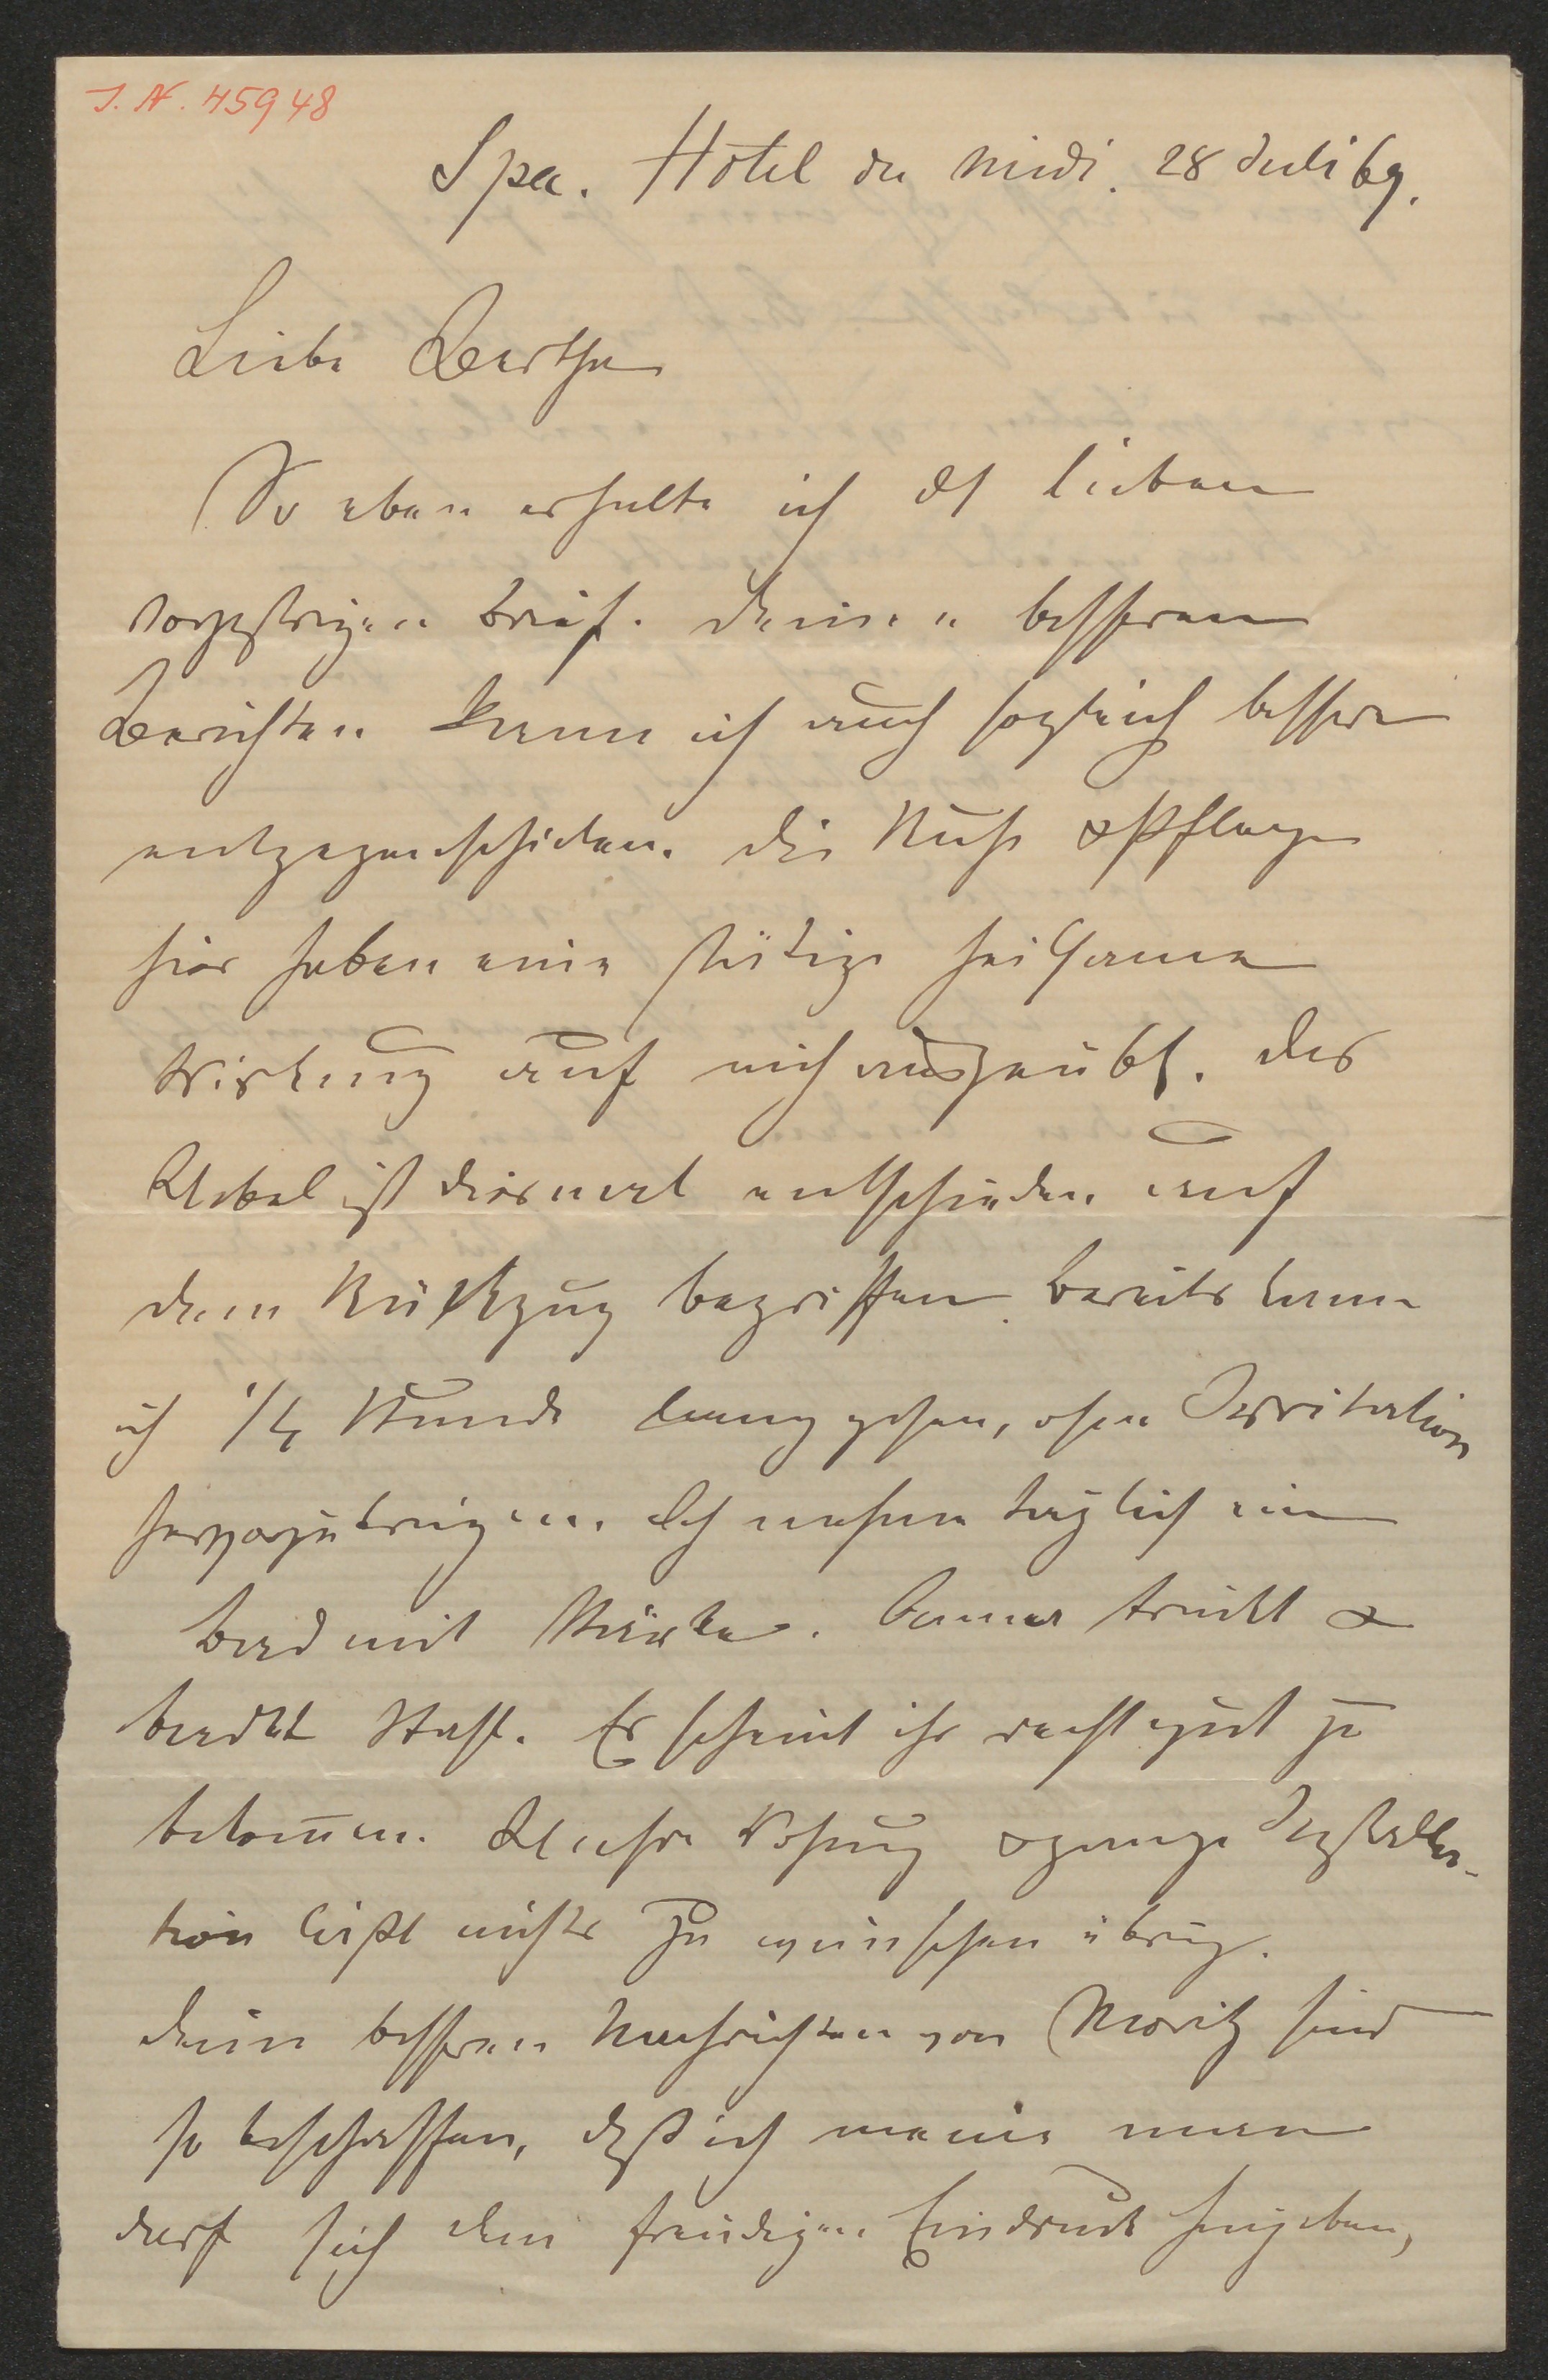 I. N. 45948
Spa. Hôtel du midi. 28 Juli 69.
Liebe Bertha
So eben erhalte ich ds lieben
vorgestrigen Brief. Deinen besseren
Berichten kann ich auch sogleich bessere
entgegenschicken. Die Ruhe & Pflege
hier haben eine stätige heilsame
Wirkung auf mich ausgeübt. Das
Uebel ist diesmal entschieden auf
dem Rückzug begriffen. Bereits kann
ich 1/4 Stunde lang gehen, ohne Irritation
hervorzubringen. Ich nehme täglich ein
Bad mit Stärke. Anna trinkt &
badet Stahl. Es scheint ihr recht gut zu
bekom̄en. Unsre Wohnung & ganze Installa-
tion läßt nichts zu wünschen übrig.
Deine besseren Nachrichten von Moritz sind
so beschaffen, daß ich meine man
darf sich dem freudigen Eindruck hingeben,